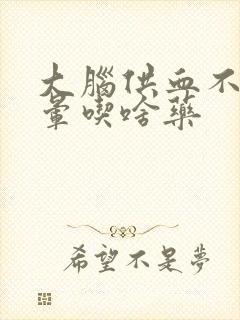 大腦供血不
暈喫啥藥
希望不是夢